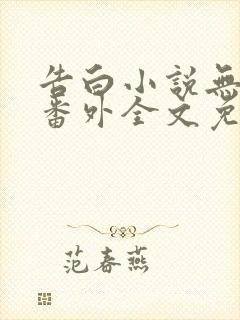 告白小說無
番外全文免
范春燕